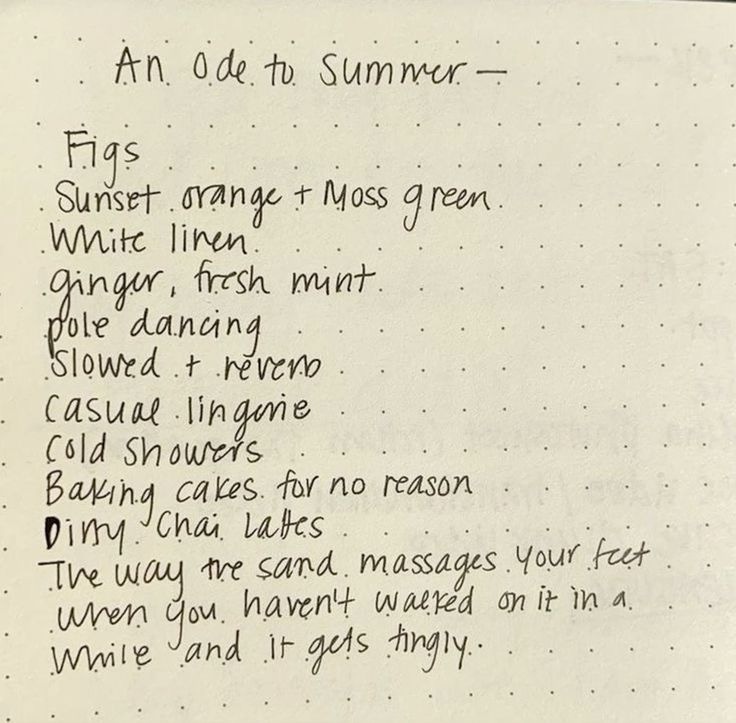 An Ode to Summer —
Figs
Sunset orange + Moss green
White linen
ginger, fresh mint
pole dancing
Slowed + reverb
casual lingerie
cold showers
Baking cakes for no reason
Dirty Chai Lattes
The way the sand massages your feet
when you haven't walked on it in a
while and it gets tingly.